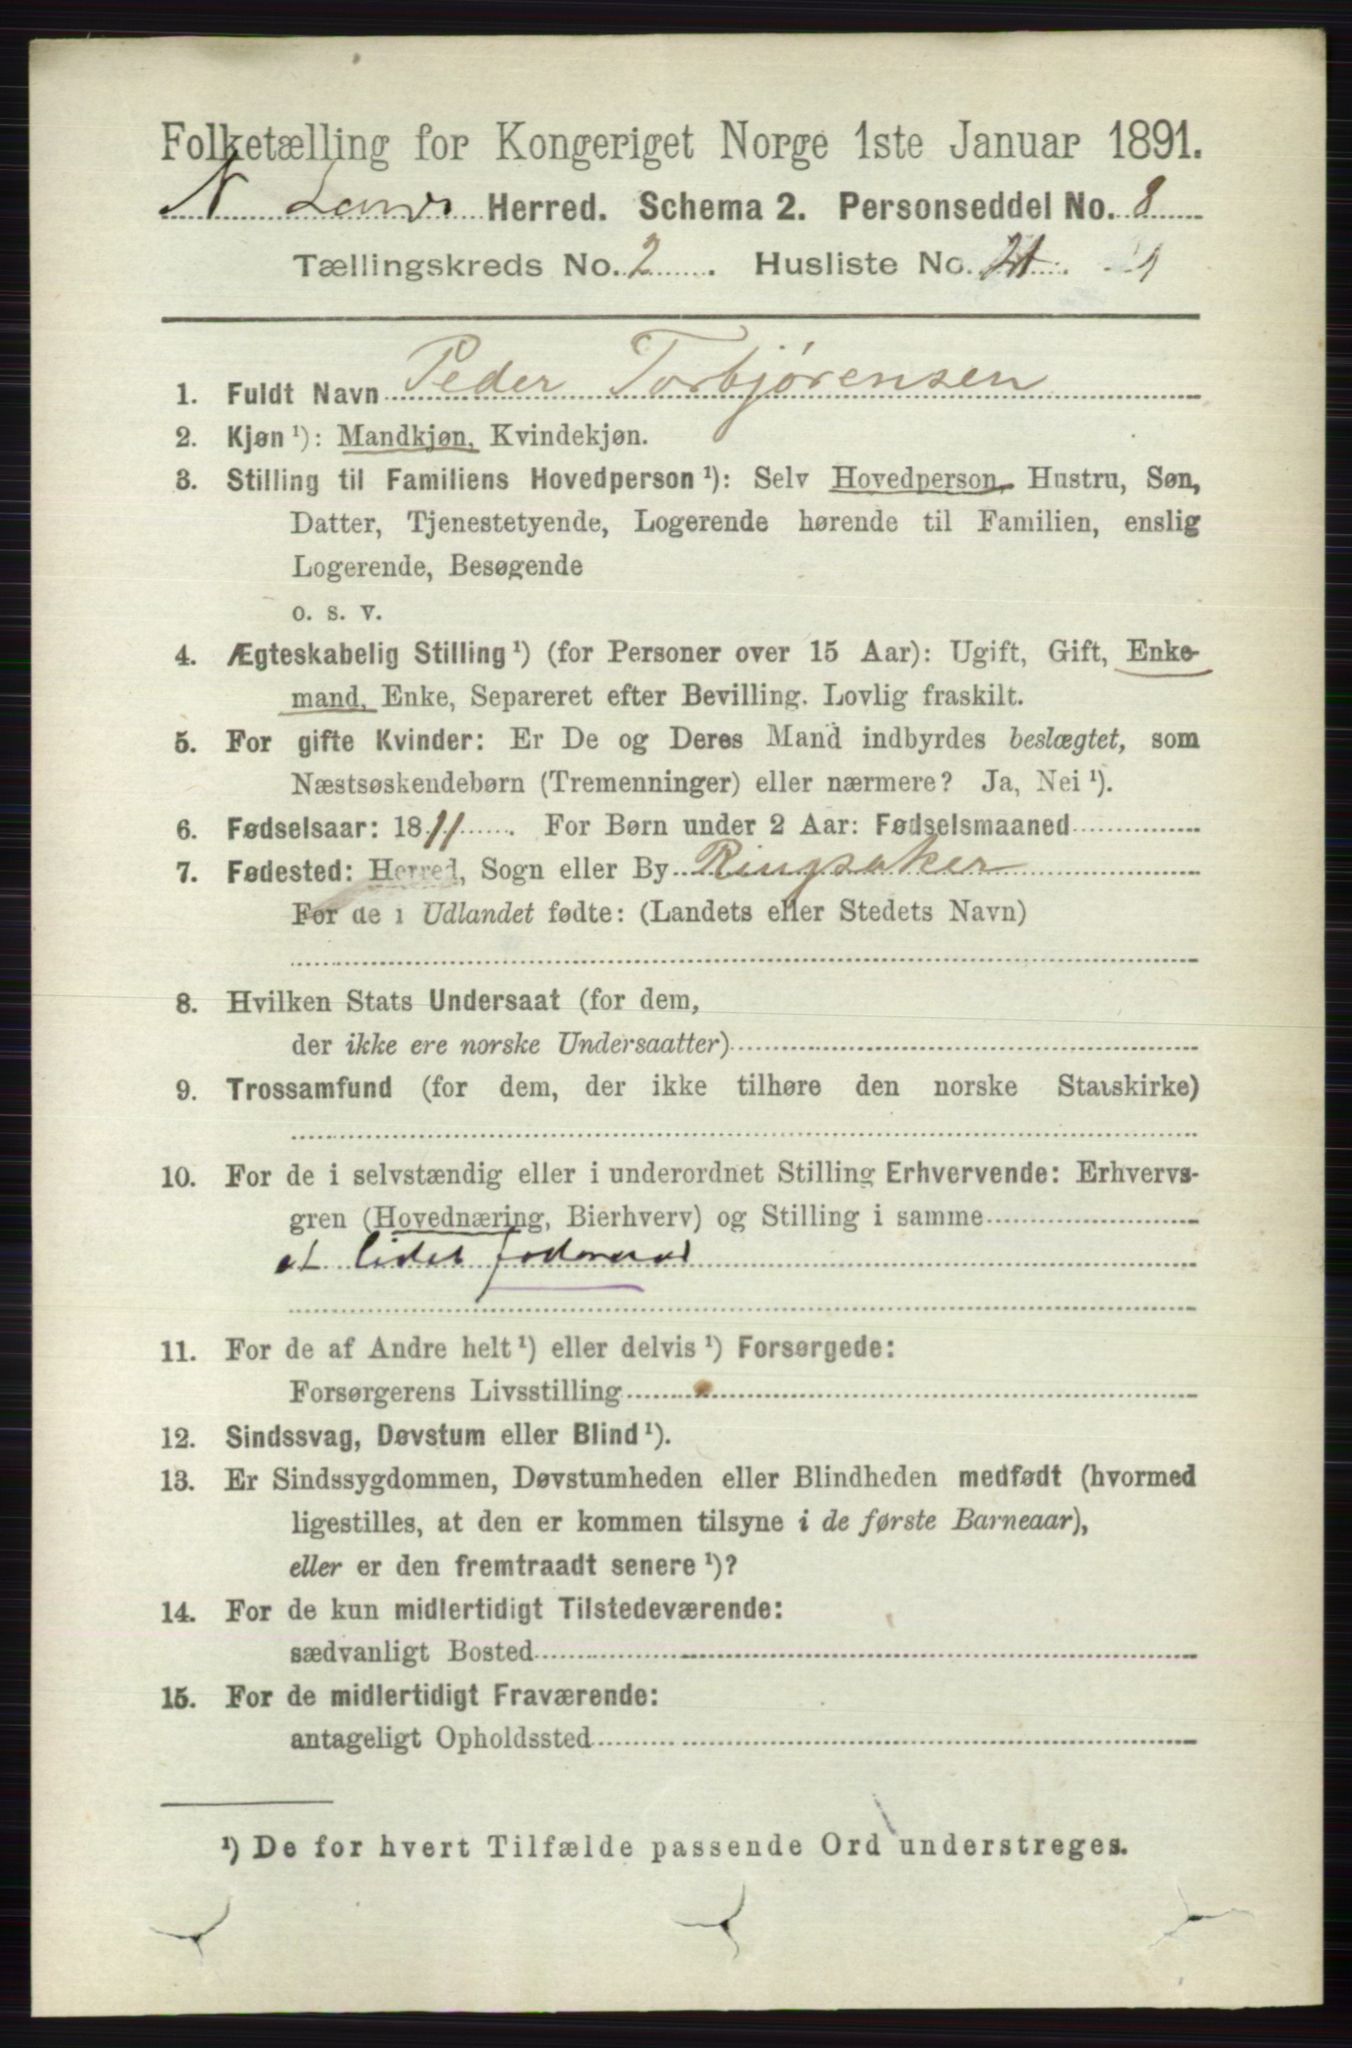 Folketælling for Kongeriget Norge 1ste Januar 1891.
N Lands Herred. Schema 2. Personseddel No. 8
Tællingskreds No. 2. Husliste No.
1. Fuldt Navn Peder Torbjørensen
2. Kjøn ¹): Mandkjøn, Kvindekjøn.
3. Stilling til Familiens Hovedperson ¹): Selv Hovedperson, Hustru, Søn,
Datter, Tjenestetyende, Logerende hørende til Familien, enslig
Logerende, Besøgende
o. s. v.
4. Ægteskabelig Stilling ¹) (for Personer over 15 Aar): Ugift, Gift, Enke-
mand, Enke, Separeret efter Bevilling. Lovlig fraskilt.
5. For gifte Kvinder: Er De og Deres Mand indbyrdes beslægtet, som
Næstsøskendebørn (Tremenninger) eller nærmere? Ja, Nei ¹).
6. Fødselsaar: 1811. For Børn under 2 Aar: Fødselsmaaned
7. Fødested: Herred, Sogn eller By Ringsaker
For de i Udlandet fødte: (Landets eller Stedets Navn)
8. Hvilken Stats Undersaat (for dem,
der ikke ere norske Undersaatter)
9. Trossamfund (for dem, der ikke tilhøre den norske Statskirke)
10. For de i selvstændig eller i underordnet Stilling Erhvervende: Erhvervs-
gren (Hovednæring, Bierhverv) og Stilling i samme
et lidet foderaad
11. For de af Andre helt ¹) eller delvis ¹) Forsørgede:
Forsørgerens Livsstilling
12. Sindssvag, Døvstum eller Blind ¹).
13. Er Sindssygdommen, Døvstumheden eller Blindheden medfødt (hvormed
ligestilles, at den er kommen tilsyne i de første Barneaar),
eller er den fremtraadt senere ¹)?
14. For de kun midlertidigt Tilstedeværende:
sædvanligt Bosted
15. For de midlertidigt Fraværende:
antageligt Opholdssted
¹) De for hvert Tilfælde passende Ord understreges.